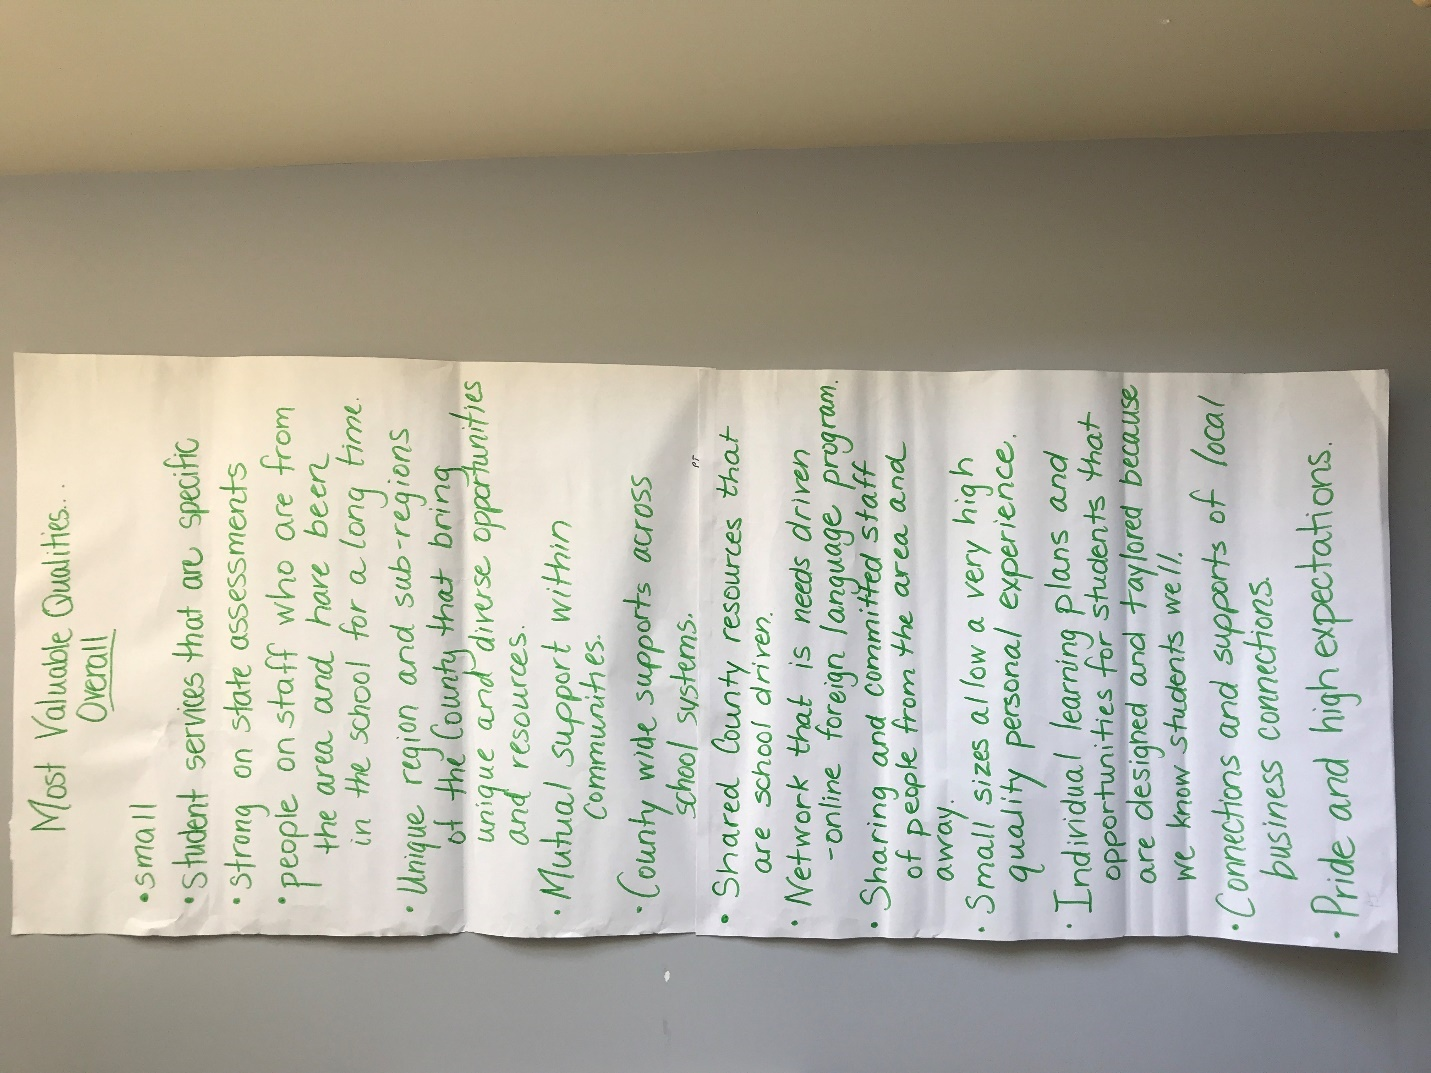 Most Valuable Qualities...
Overall
• small
• Student services that are specific
• strong on state assessments
• people on staff who are from
the area and have been
in the school for a long time.
• Unique region and sub-regions
of the County that bring
unique and diverse opportunities
and resources.
• Mutual support within
communities.
• County wide supports across
school systems.
• Shared County resources that
are school driven.
• Network that is needs driven
-online foreign language program.
• Sharing and committed staff
of people from the area and
away.
• Small sizes allow a very high
quality personal experience.
• Individual learning plans and
opportunities for students that
are designed and taylored because
we know students well.
• Connections and supports of local
business connections.
• Pride and high expectations.